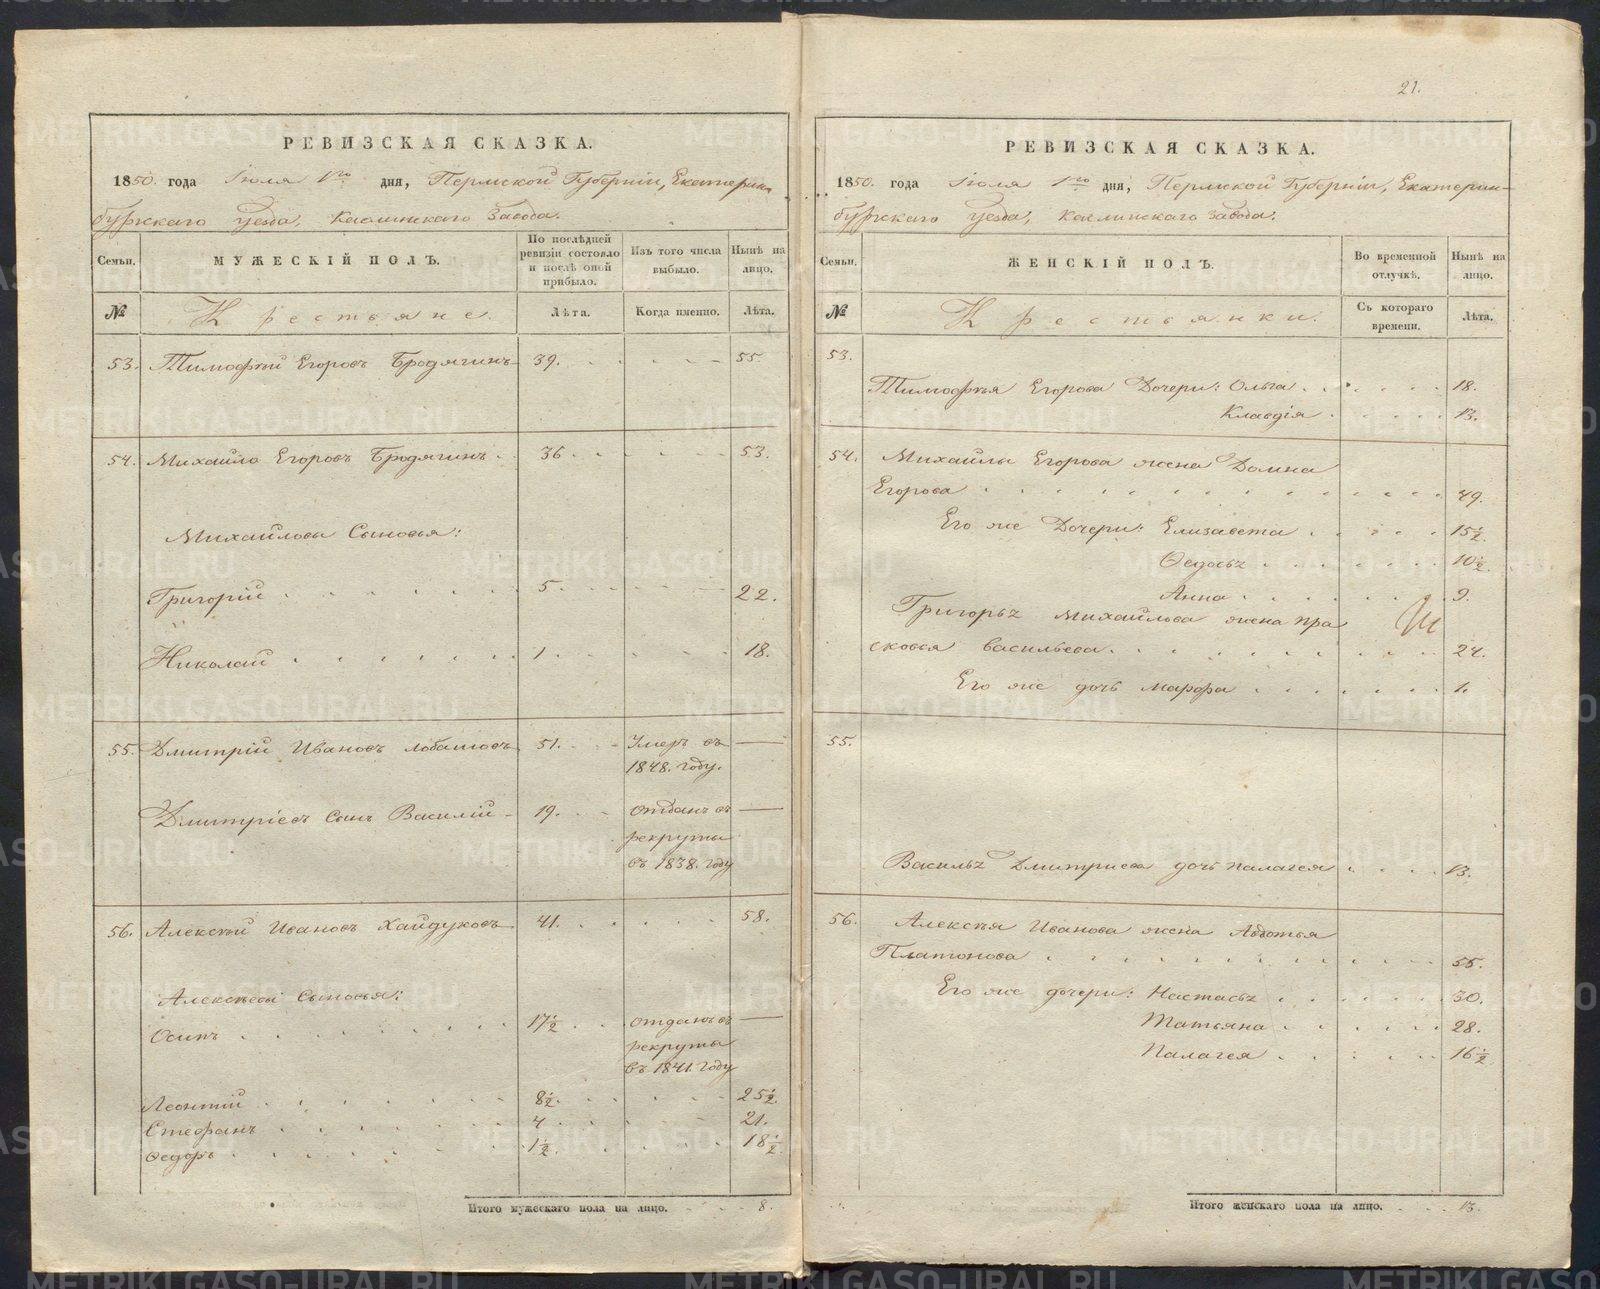 21.
РЕВИЗСКАЯ СКАЗКА.
1850. года Іюля 1го дня, Пермской Губерніи, Екатерин-
бургскаго уезда, Каслинскаго завода.
Семьи.
МУЖЕСКІЙ ПОЛЪ.
По послѣдней ревизіи состояло и послѣ оной прибыло.
Изъ того числа выбыло.
Нынѣ на лицо.
№
Крестьяне.
Лѣта.
Когда именно.
Лѣта.
53. Тимофѣй Егоровъ Бродягинъ 39. 55.
54. Михайло Егоровъ Бродягинъ. 36. 53.
Михайловы Сыновья:
Григорій 5. 22.
Николай 1. 18.
55. Дмитрій Ивановъ Лобашовъ 51. Умеръ въ —
1848. году.
Дмитріевъ сынъ Василій 19. отданъ въ —
рекруты
въ 1838. году
56. Алексѣй Ивановъ Хайдуковъ 41. 58.
Алексѣевы сыновья:
Осипъ 17½ отданъ въ —
рекруты
въ 1841. году
Леонтій 8½. 25½.
Стефанъ 4. 21.
Ѳедоръ 1½. 18½.
Итого мужескаго пола на лицо. 8.
РЕВИЗСКАЯ СКАЗКА.
1850. года Іюля 1го дня, Пермской Губерніи, Екатерин-
бургскаго уезда, Каслинскаго завода.
Семьи.
ЖЕНСКІЙ ПОЛЪ.
Во временной отлучкѣ.
Нынѣ на лицо.
№
Крестьянки.
Съ котораго времени.
Лѣта.
53.
Тимофѣя Егорова Дочери: Ольга 18.
Клавдія 13.
54. Михайлы Егорова жена Домна
Егорова 49.
Его же Дочери: Елизавета 15½.
Ѳедосья 10½.
Анна 9.
Григорья Михайлова жена Пра
сковья Васильева 24.
Его же дочь Марфа 1.
55.
Василья Дмитриева дочь Палагея 13.
56. Алексѣя Иванова жена Авдотья
Платонова 55.
Его же дочери: Настасья 30.
Татьяна 28.
Палагея 16½
Итого женскаго пола на лицо. 13.
METRIKI.GASO-URAL.RU